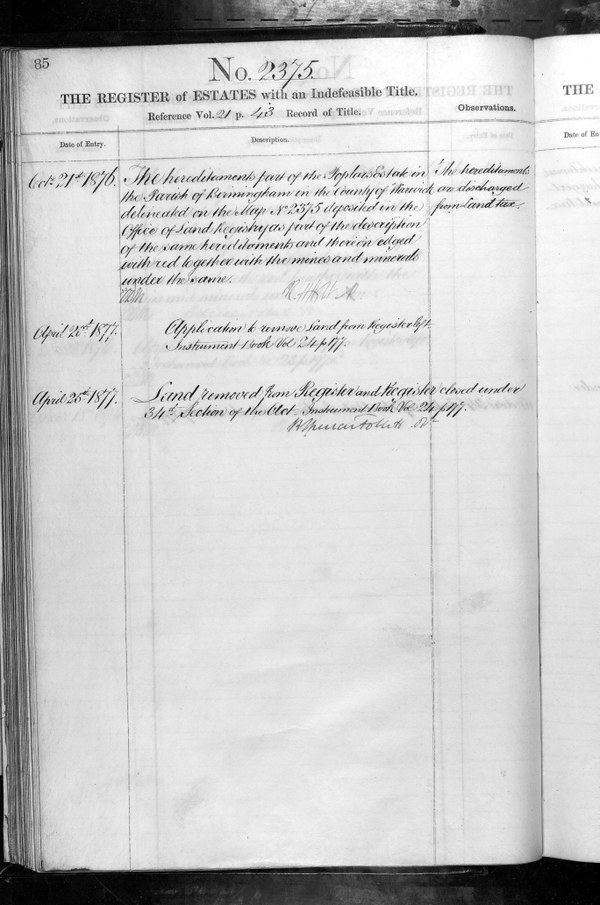 85
No. 2375.
THE REGISTER of ESTATES with an Indefeasible Title.
Reference Vol. 21 p. 43 Record of Title.
Observations.
Date of Entry.
Description.
Octr 21st 1876.
The hereditaments part of the Poplars Estate in
the Parish of Birmingham in the County of Warwick
delineated on the Map No 2375 deposited in the
Office of Land Registry as part of the description
of the same hereditaments and thereon edged
with red together with the mines and minerals
under the same.
The hereditaments
are discharged
from Land tax.
April 25th 1877.
Application to remove Land from Register left.
Instrument Book Vol 24 p 177.
April 25th 1877.
Land removed from Register and Register closed under
34th Section of the Act. Instrument Book Vol 24 p 177.
THE
Date of En